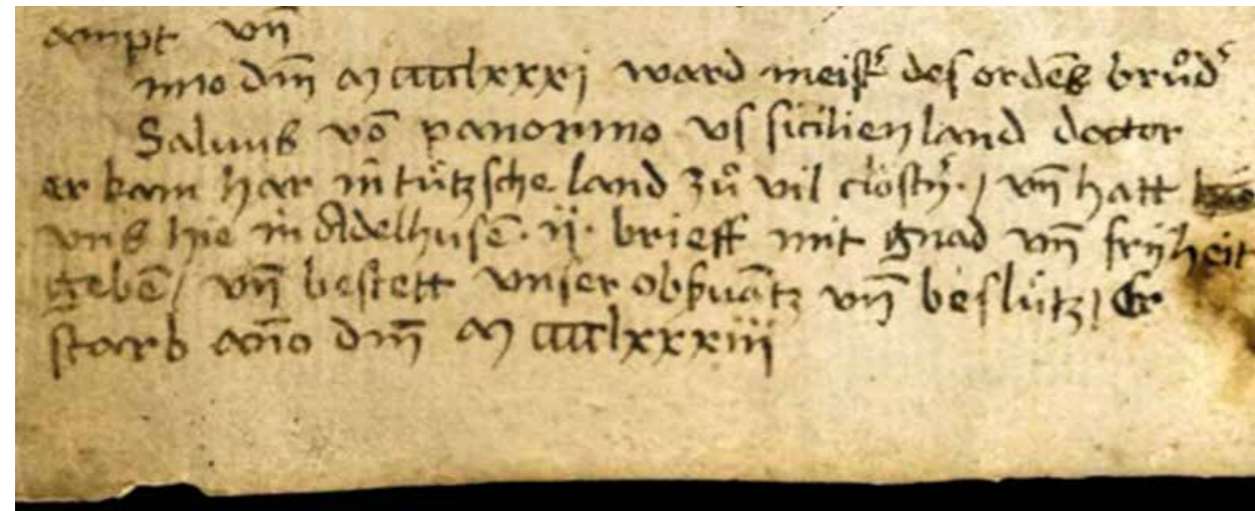 ampt vn̄
nno dm̄ M cccclxxxj ward meist᷑ des ordēs brůd᷑
Saluus vō panormo vs sicilien land doctor
er kam har in tútzsche land zů vil clöst᷑ / vn̄ hatt
vns hie in Adelhusē · ij · brieff mit gnad vn̄ frijheit
gebē / vn̄ bestett vnser obsuātz vn̄ beslútz / Er
starb año dm̄ M cccclxxxiij